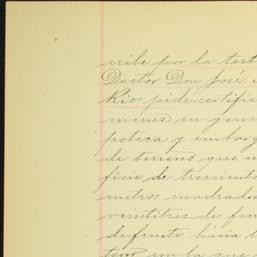 cribe por la test
Doctor Don José
Rio pide certific
menes en gene
poteca y embarg
de terreno que m
ficie de trescient
metros cuadrados
veintitres de fon
de frente hácia l